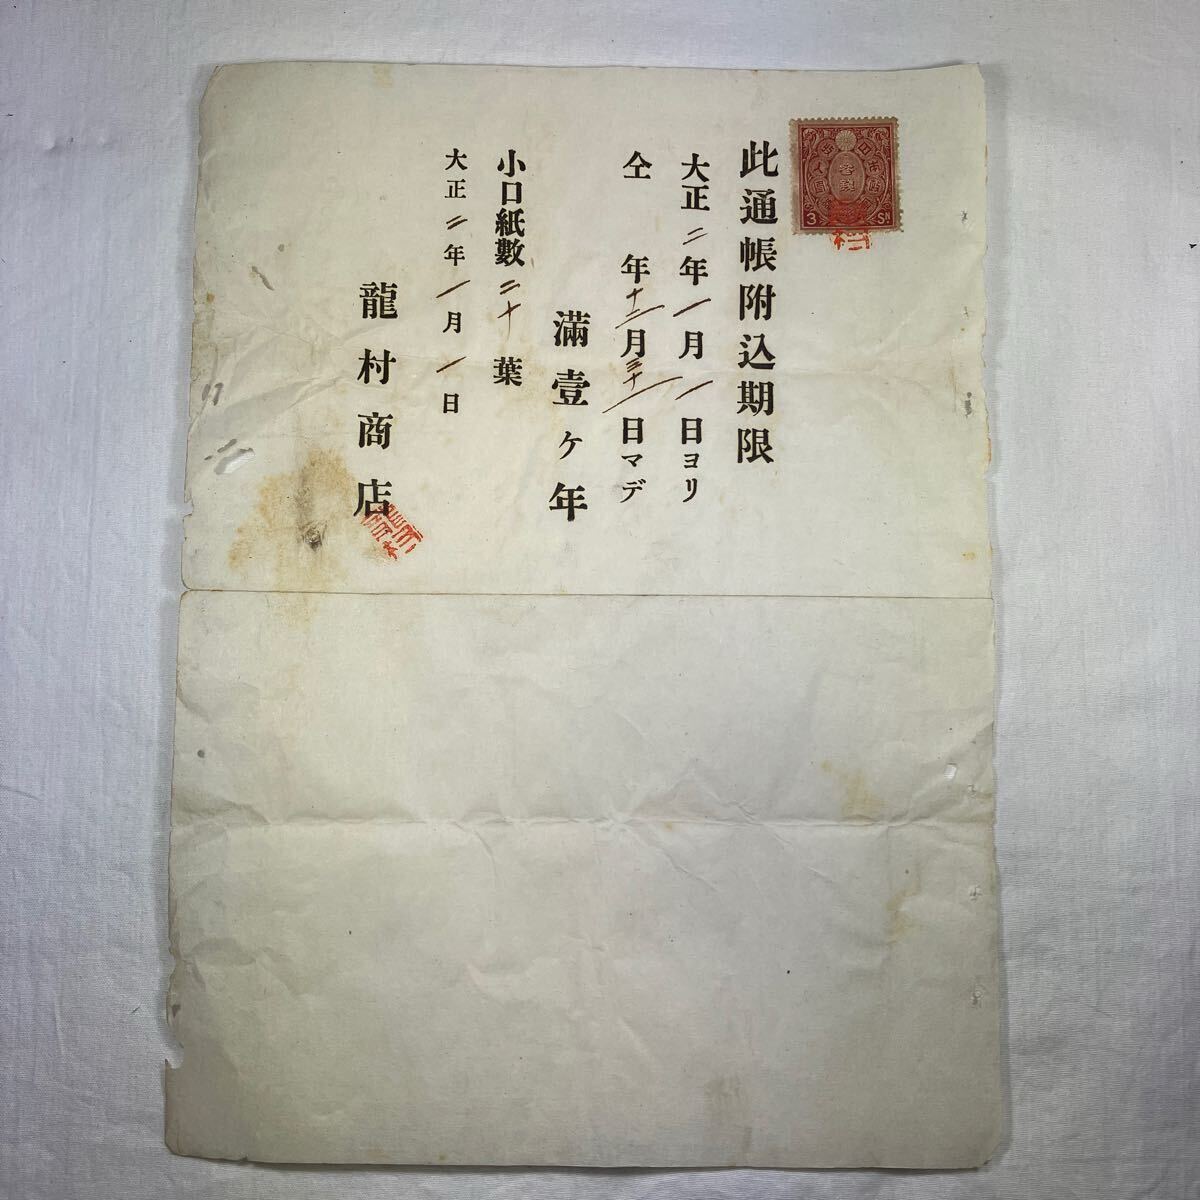 此通帳附込期限
大正二年一月一日ヨリ
仝 年十二月三十一日マデ
滿壹ヶ年
小口紙數二十葉
大正二年一月一日
龍村商店
3 SN